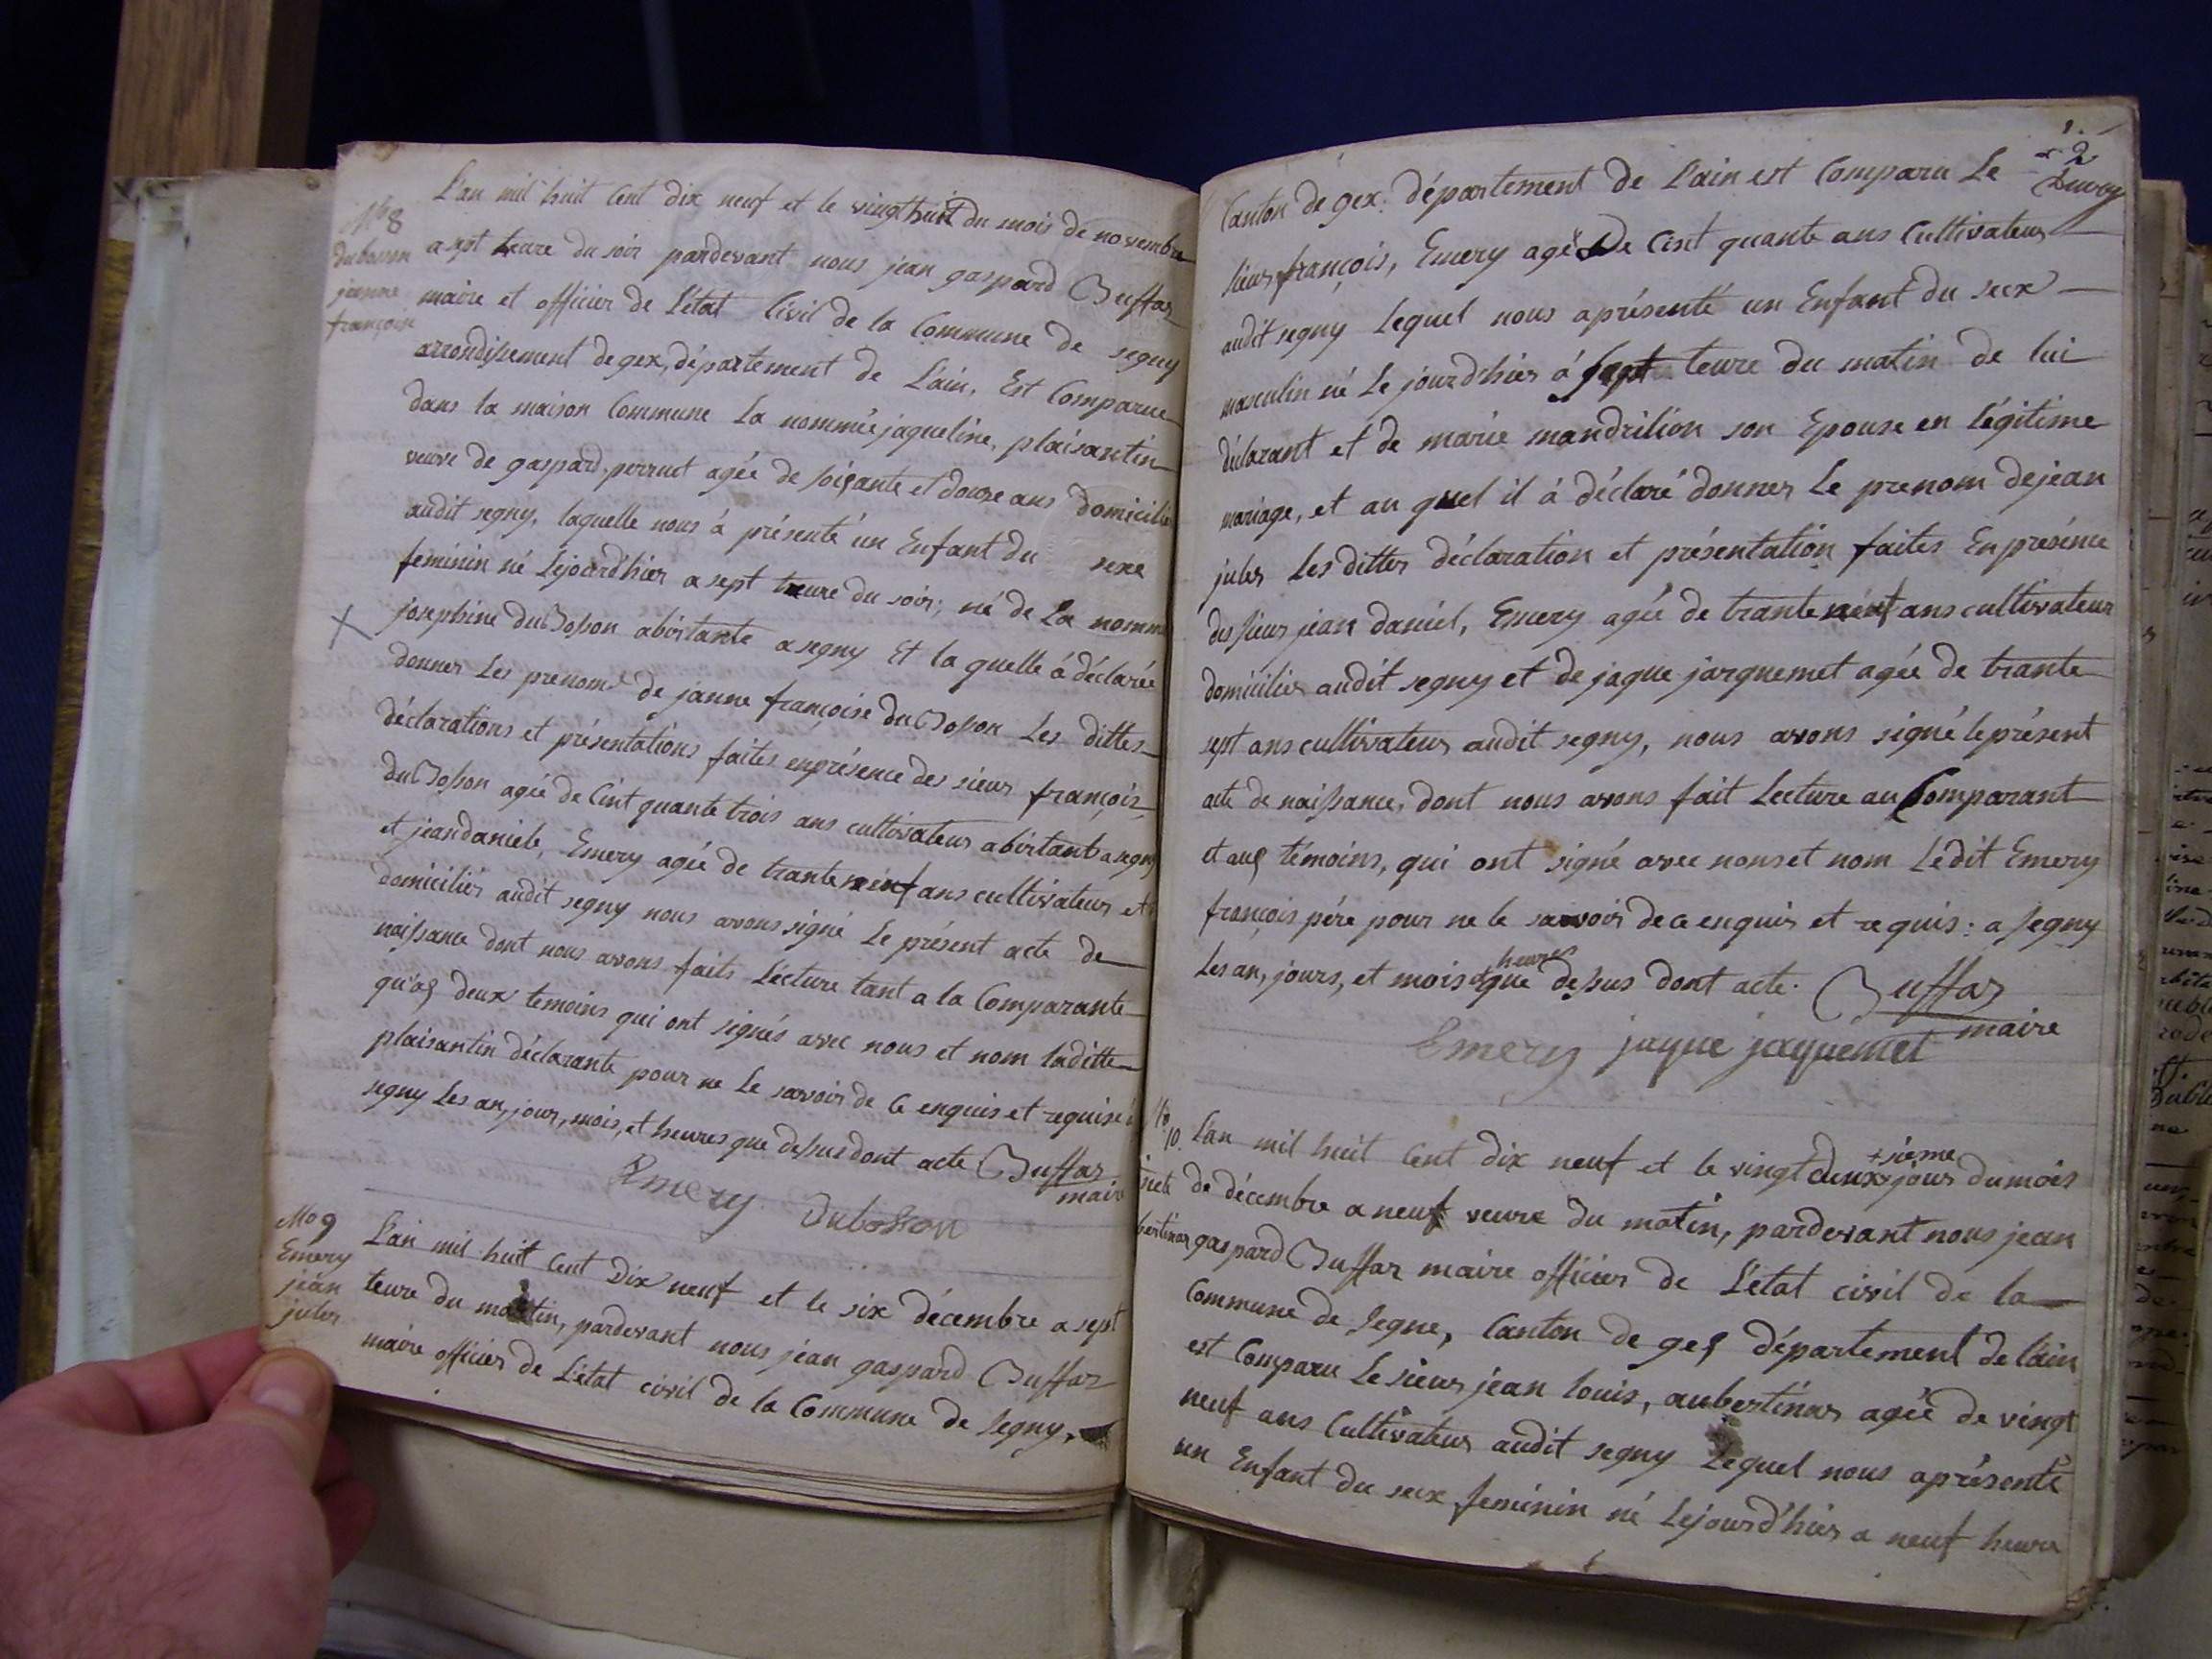 No 8
dubosson
janne
françoise
L'an mil huit Cent dix neuf et le vingt huit du mois de novembre
a sept teure du soir pardevant nous jean gaspard Buffaz
maire et officier de L'état Civil de la Commune de segny
arrondissement de gex, département de L'ain, Est Comparue
dans la maison Commune La nommée jaqueline, plaisantin
veuve de gaspard, perruet agée de soiçante et douze ans domicilié
audit segny, laquelle nous á présenté un Enfant du sexe
feminin né Lejourd'hier a sept teure du soir; né de La nommé
josephine duBosson abistante a segny Et la quelle á déclarée
donner Les prenoms de janne françoise duBosson Les dittes
déclarations et présentations faites enprésence des sieur françois,
duBosson agée de Cint quante trois ans cultivateur abistant a segny
et jeandaniele, Emery agée de trante neuf ans cultivateur et
domiciliés audit segny nous avons signé Le présent acte de
naissance dont nous avons faits Lecture tant a la Comparante
qu'aç deux temoins qui ont signés avec nous et nom laditte
plaisantin déclarante pour ne Le savoir de Ce enquis et requise à
segny Les an, jour, mois, et heures que dessus dont acte Buffaz
maire
Emery Dubosson
No 9
Emery
jean
jules
L'an mil huit Cent Dix neuf et le six décembre a sept
teure du matin, pardevant nous jean gaspard Buffaz
maire officier de L'état civil de la Commune de segny,
2
Canton de gex. département de L'ain est Comparu Le
sieur françois, Emery agé De Cint quante ans Cultivateur
audit segny Lequel nous aprésenté un Enfant du sex
masculin né Le jourd'hier á sept teure du matin de lui
déclarant et de marie mandrilion son Epouse en Légitime
mariage, et au quel il á déclaré donner Le prenom dejean
jules Les dittes déclaration et présentation faites En présence
des sieur jean daniel, Emery agée de trante neuf ans cultivateur
domiciliés audit segny et de jaque jarquemet agée de trante
sept ans cultivateur audit segny, nous avons signé le présent
acte de naissance, dont nous avons fait Lecture au Comparant
et auç témoins, qui ont signé avec nous et nom Ledit Emery
françois pére pour ne le savoir de ce enquis et requis: a segny
Les an, jours, et mois et heures que dessus dont acte. Buffaz
maire
Emery jaque jaquemet
No
10.
bertinaz
L'an mil huit Cent dix neuf et le vingt deux +sieme jour dumois
de décembre a neuf veure du matin, pardevant nous jean
gaspard Buffaz maire officier de L'état civil de la
Commune de segne, Canton de geç département de l'ain
est Comparu Le sieur jean louis, aubertinaz agée de vingt
neuf ans Cultivateur audit segny Lequel nous aprésenté
un Enfant du sex feminin né Lejourd'hier a neuf heure